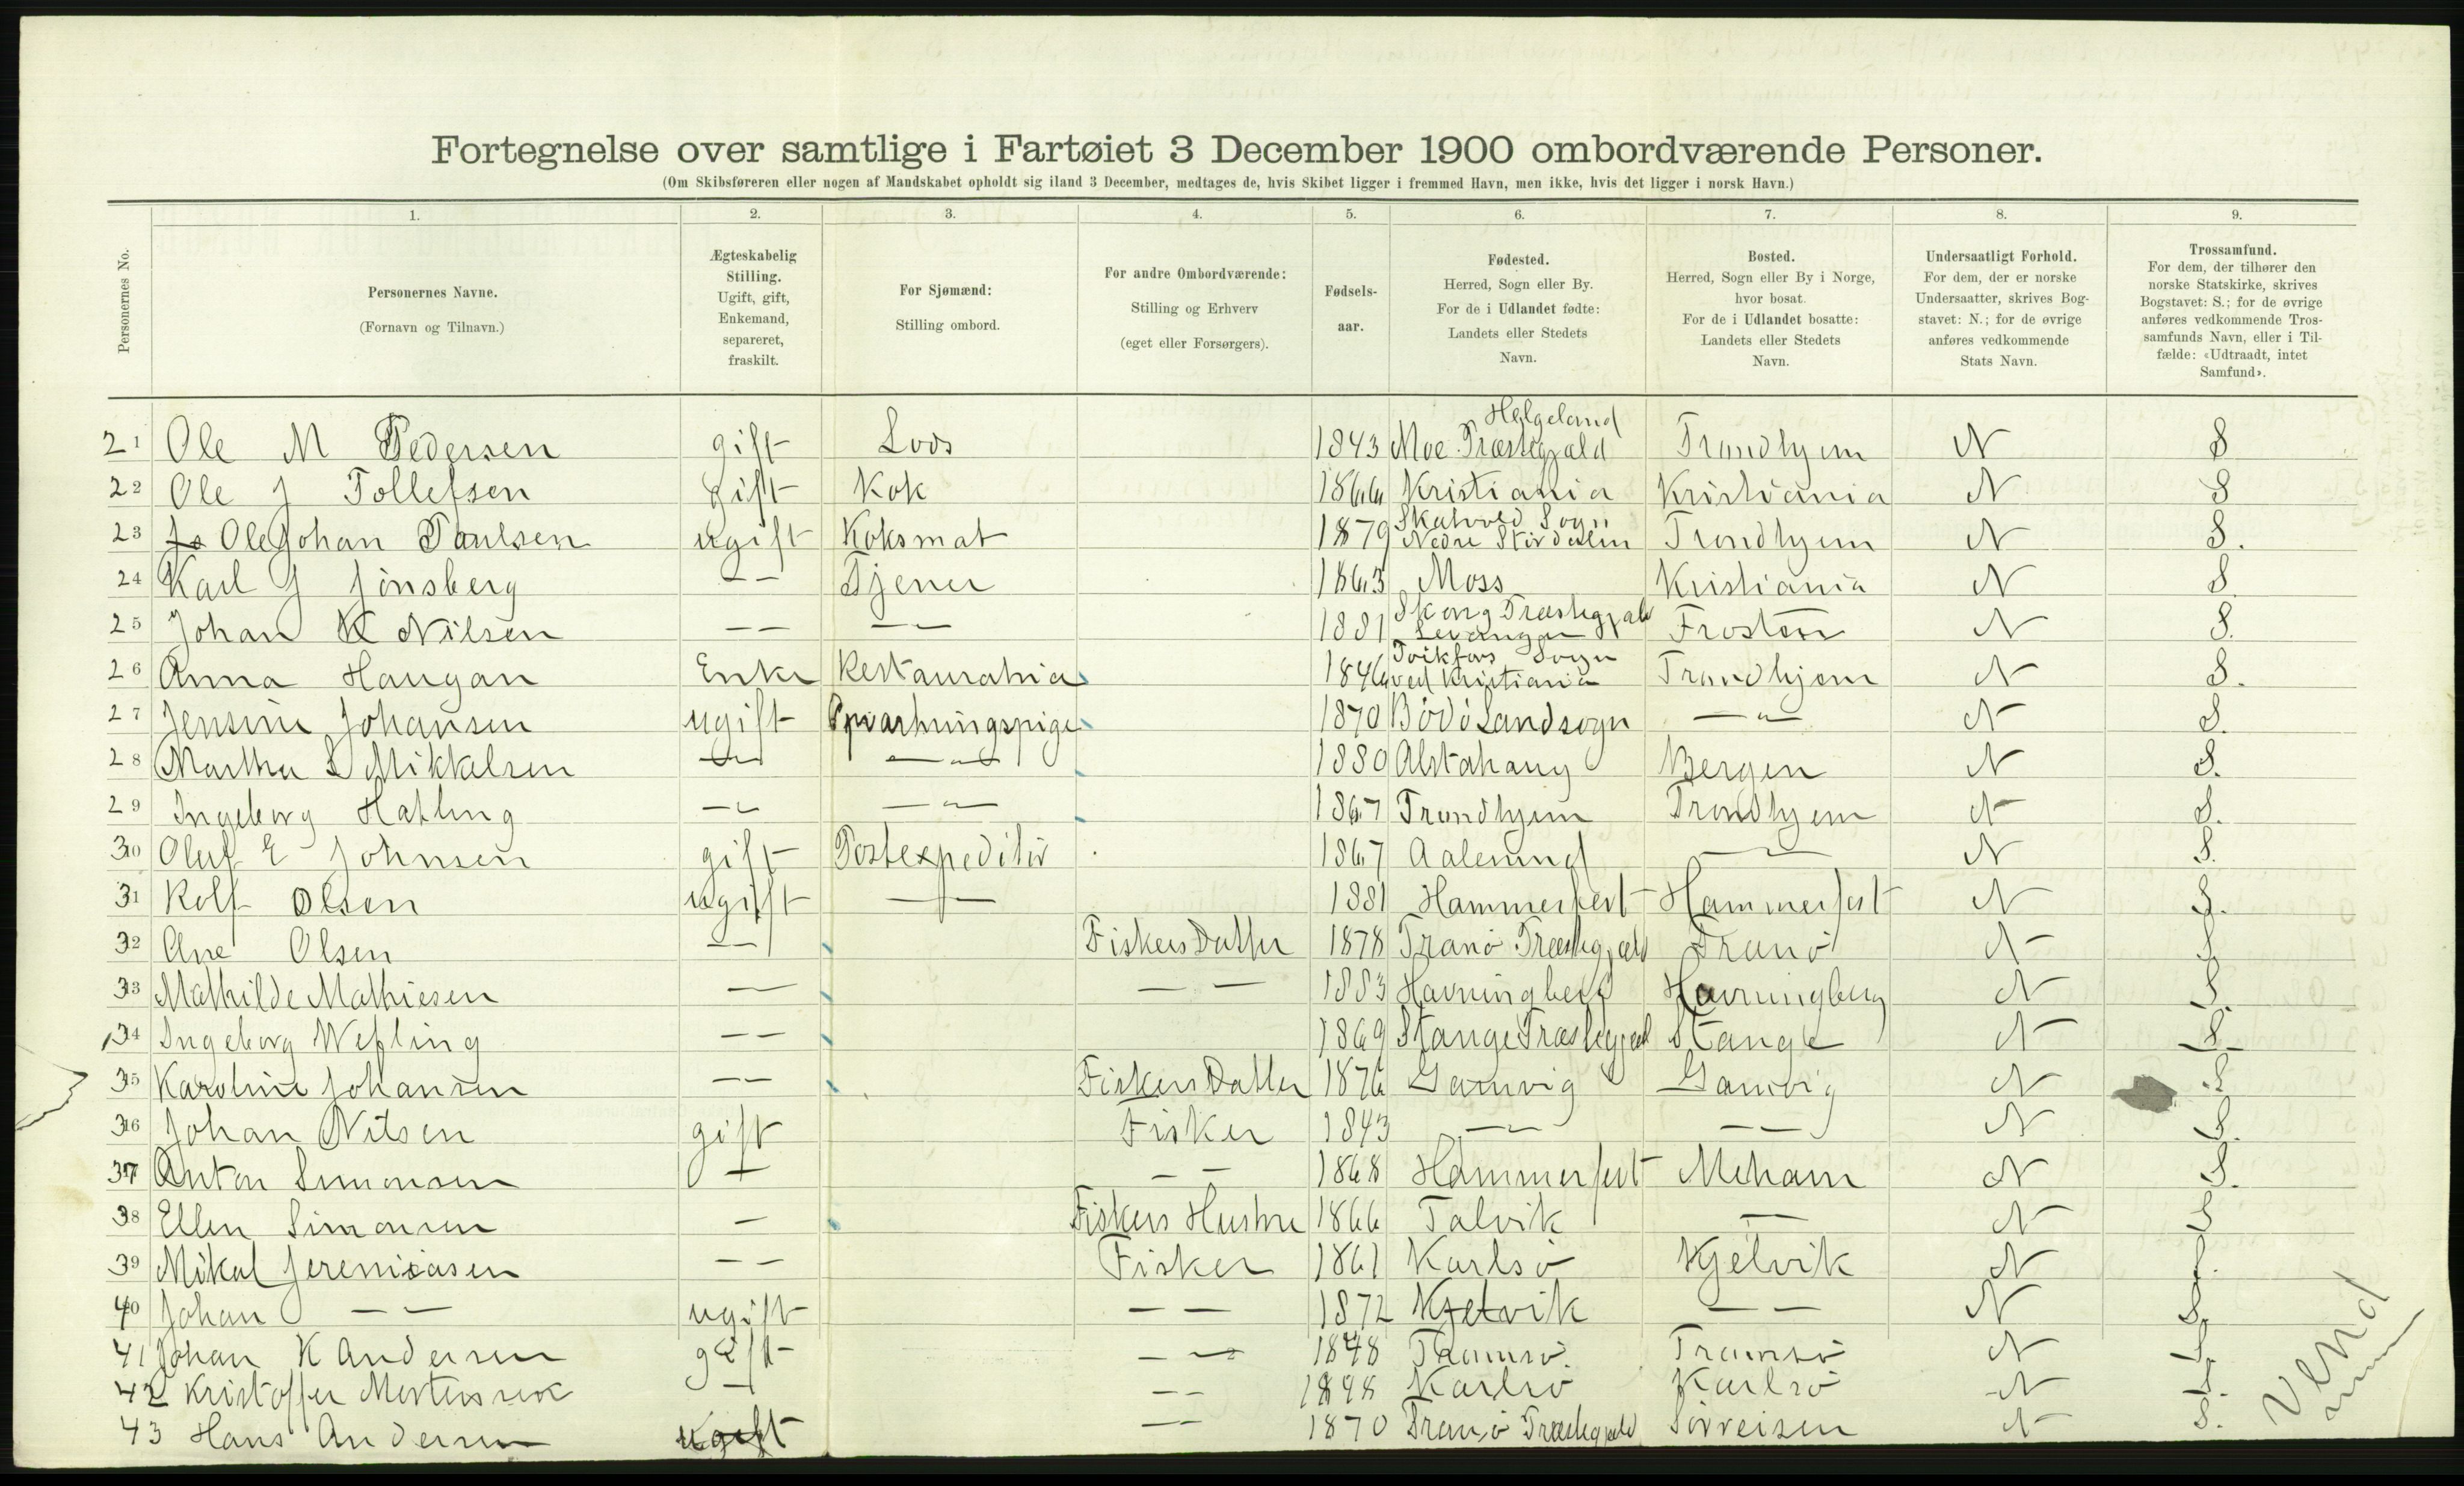 Fortegnelse over samtlige i Fartøiet 3 December 1900 ombordværende Personer.
(Om Skibsføreren eller nogen af Mandskabet opholdt sig iland 3 December, medtages de, hvis Skibet ligger i fremmed Havn, men ikke, hvis det ligger i norsk Havn.)
Personernes No.
1.
Personernes Navne.
(Fornavn og Tilnavn.)
2.
Ægteskabelig
Stilling.
Ugift, gift,
Enkemand,
separeret,
fraskilt.
3.
For Sjømænd:
Stilling ombord.
4.
For andre Ombordværende:
Stilling og Erhverv
(eget eller Forsørgers).
5.
Fødsels-
aar.
6.
Fødested.
Herred, Sogn eller By.
For de i Udlandet fødte:
Landets eller Stedets
Navn.
7.
Bosted.
Herred, Sogn eller By i Norge,
hvor bosat.
For de i Udlandet bosatte:
Landets eller Stedets
Navn.
8.
Undersaatligt Forhold.
For dem, der er norske
Undersaatter, skrives Bog-
stavet: N.; for de øvrige
anføres vedkommende
Stats Navn.
9.
Trossamfund.
For dem, der tilhører den
norske Statskirke, skrives
Bogstavet: S.; for de øvrige
anføres vedkommende Tros-
samfunds Navn, eller i Til-
fælde: «Udtraadt, intet
Samfund».
Helgeland
21 Ole M Pedersen gift Lods 1843 Moe Præstegjæld Trondhjem N S
22 Ole J Tollefsen gift Kok 1866 Kristiania Kristiania N S
Skatvold Sogn
23 Ole Johan Paulsen ugift Koksmat 1879 Nedre Stjørdalen Trondhjem N S.
24 Karl J Jönsberg — — Tjener 1863 Moss Kristiania N S.
Skong Præstegjæld
25 Johan K Nilsen — — — — 1881 Levanger Frosten N S.
Sogn
26 Anna Haugan Enke Restauratria 1846 ved Kristiania Trondhjem N S.
27 Jensine Johansen ugift Opvartningspige 1870 Bödö Landsogn — " — N S.
28 Martha S Mikkelsen — " — — " — 1880 Alstahaug Bergen N S.
29 Ingeborg Hafling — " — — " — 1867 Trondhjem Trondhjem N S.
30 Oluf E Johnsen gift Postexpeditör 1867 Aalesund — " — N S.
31 Rolf Olsen ugift — " — 1881 Hammerfest Hammerfest N S.
32 Ane Olsen — — Fiskers Datter 1878 Tranö Præstegjæld Tranö N S
33 Mathilde Mathiesen — — — 1883 Havningberg Havningberg N S.
34 Ingeborg Wefling — — 1869 Stange Præstegjæld Stange N S
35 Karoline Johansen — — Fiskers Datter 1876 Gamvig Gamvig N S
36 Johan Nilsen gift Fisker 1843 — — — — N S.
37 Anton Simonsen — — — 1868 Hammerfest Meham N S.
38 Ellen Simonsen — Fiskers Hustru 1866 Talvik — N S
39 Mikal Jeremiasen — — Fisker 1861 Karlsö Kjelvik N S.
40 Johan — — ugift — — 1872 Kjelvik — — N S.
41 Johan K Andersen gift — — 1848 Tromsö Tromsö N S.
42 Kristoffer — — — Karlsö Karlsö N S.
43 Hans Andersen ugift — — 1870 Tranö Præstegjæld Sörreisen N S.
Vend